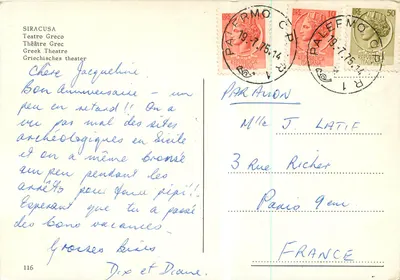 SIRACUSA
Teatro Greco
Théâtre Grec
Greek Theatre
Griechisches theater
Chère Jacqueline,
Bon Anniversaire - un
peu en retard!! On a
vu pas mal des sites
archéologiques en Sicile
et on a même bronzé
un peu pendant les
arrêts pour faire pipi!!
Esperant que tu a passé
des bons vacances.
Grosses bises
Dix et Diane.
116
PALERMO C.P.
19-7-76.14
R 1
PALERMO C.P.
19-7-76.14
R 1
50
PAR AVION
Mlle J. LATIF
3 Rue Richer
Paris 9em
FRANCE